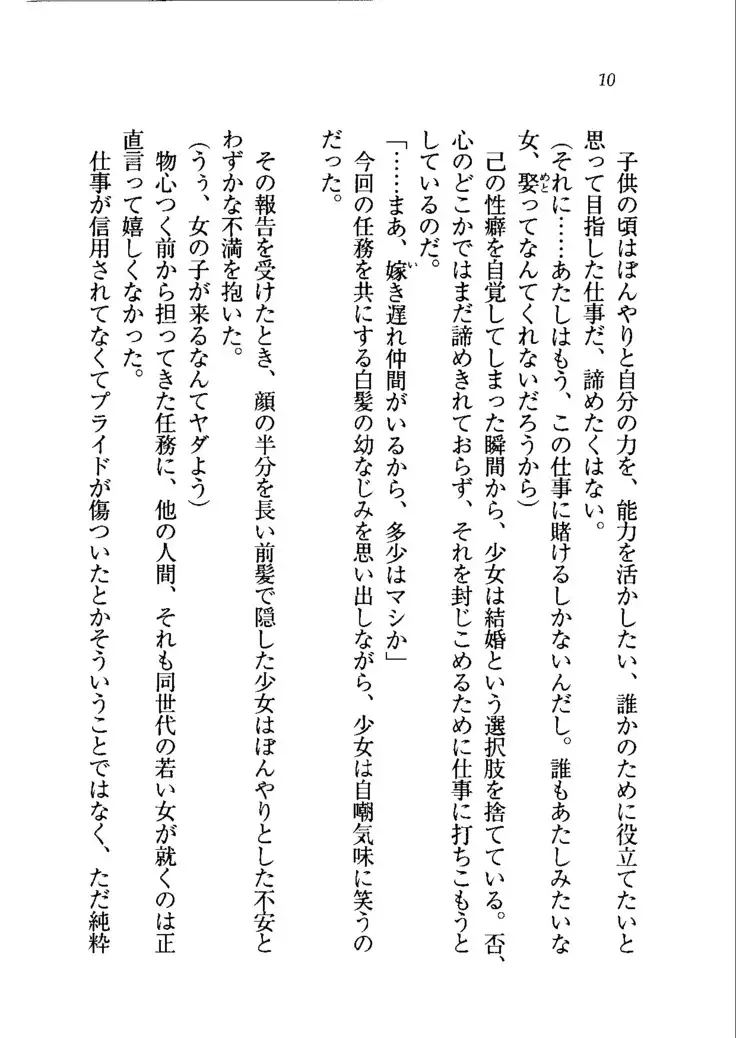 10
子供の頃はぼんやりと自分の力を、能力を活かしたい、誰かのために役立てたいと
思って目指した仕事だ、諦めたくはない。
(それに……あたしはもう、この仕事に賭けるしかないんだし。誰もあたしみたいな
女、娶ってなんてくれないだろうから)
己の性癖を自覚してしまった瞬間から、少女は結婚という選択肢を捨てている。否、
心のどこかではまだ諦めきれておらず、それを封じこめるために仕事に打ちこもうと
しているのだ。
「……まあ、嫁き遅れ仲間がいるから、多少はマシか」
今回の任務を共にする白髪の幼なじみを思い出しながら、少女は自嘲気味に笑うの
だった。
その報告を受けたとき、顔の半分を長い前髪で隠した少女はぼんやりとした不安と
わずかな不満を抱いた。
(うぅ、女の子が来るなんてヤダよう)
物心つく前から担ってきた任務に、他の人間、それも同世代の若い女が就くのは正
直言って嬉しくなかった。
仕事が信用されてなくてプライドが傷ついたとかそういうことではなく、ただ純粋